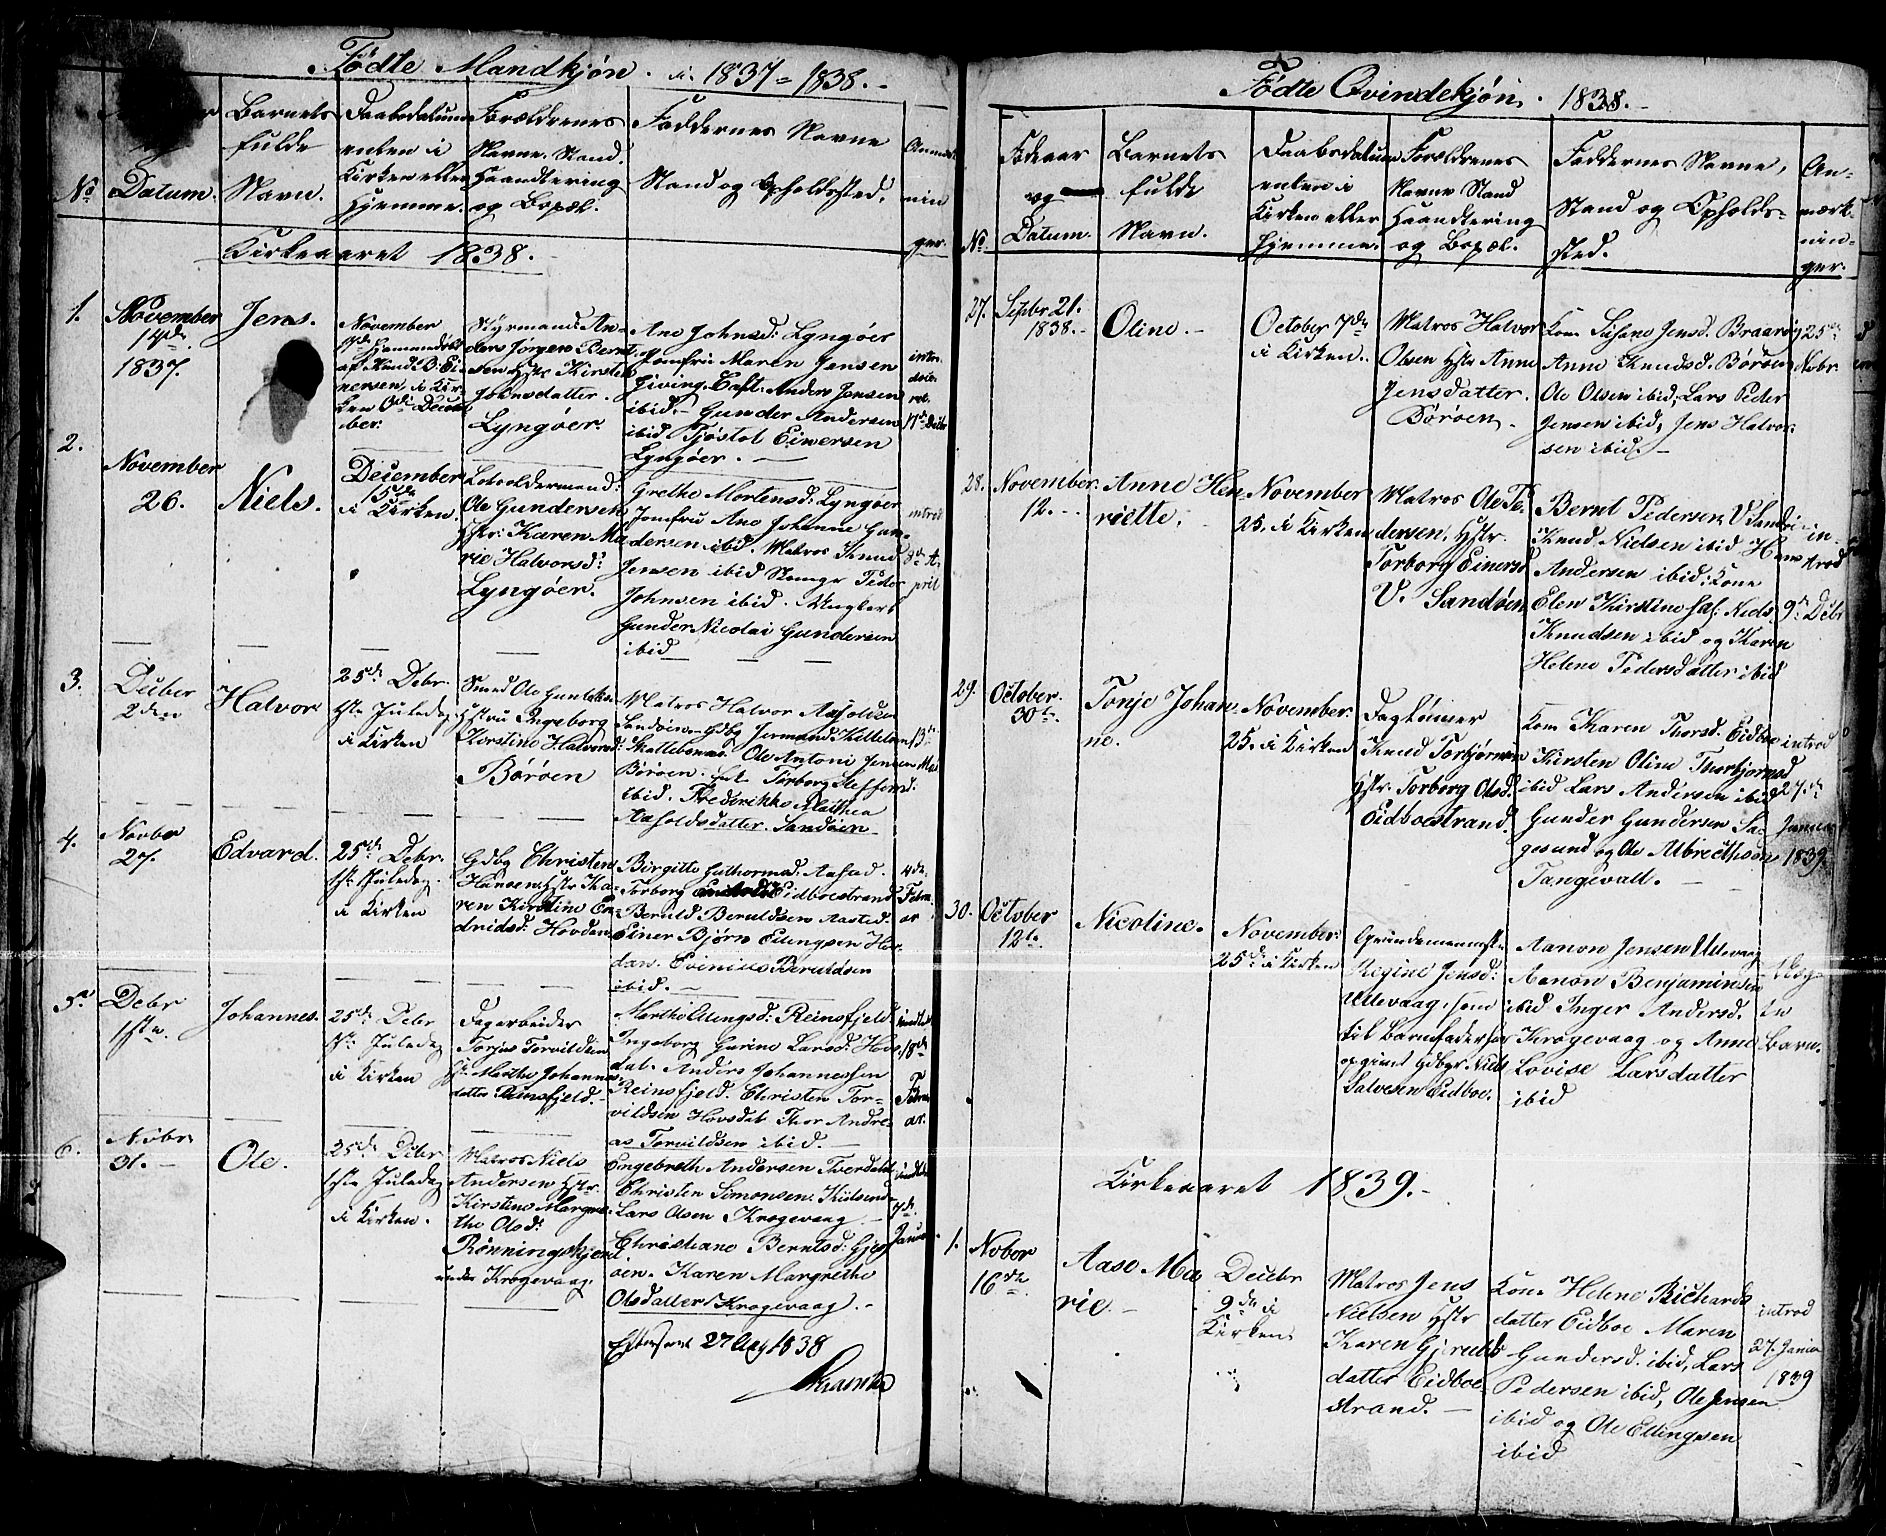 Fødte Mandkjøn. i 1837 = 1838.
No
Datum.
Barnets
fulde
Navn.
Daabsdatum
enten i
Kirken eller
Hjemme.
Forældrenes
Navne. Stand.
Haandtering
og Bopæl.
Faddernes Navne
Stand og Opholdssted.
Anmærk
nin
ger.
Kirkeaaret 1838.
1.
November
14de
1837.
Jens.
November
i Kir-
ken
ber.
Styrmand An-
ders Jørgen Bernt
sen Hstr Kirsten
Johnsdatter.
Lyngøer.
Ane Johnsd. Lyngøer
Jomfru Maren Jensen
Giving. Capt. Anders Jensen
ibid. Gunder Andersen
ibid Tjøstol Einersen
Lyngøer.
intro
2.
November
26.
Niels.
December
15de
i Kirken.
Lodsoldermand:
Ole Gundersen
Hstr: Karen Ma
rie Halvorsd:
Lyngøer.
Grethe Mortensd: Lyngøer
Jomfru Ane Johanne Gun-
dersen ibid. Matros Knud
Jensen ibid Peder
Johnsen ibid. Ungkarl
Gunder Nicolai Gundersen
ibid
introd
April
3.
Decber
2den
Halvor
25de Debr.
1ste Juledag
i Kirken
Smed Ole
Hstru Ingeborg
Kirstine Halvorsd:
Børøen
Matros Halvor
Sandøen. Gdbg Kittelsen
Ole Antoni Jensen
Børøen. Torborg Steffensd.
ibid. Frederikke Alathea
Aasholdsdatter. Sandøen
13de
4.
Novbr
27.
Edvard.
25de Debr.
1ste Juledag.
i Kirken
Gdbg Christen
Hansen, Hstr Ka-
ren Kirstine En-
dridsd: Hovdan.
Birgitte Guthormsd: Aasad.
Torborg Eidboestrand
Beruld Beruldsen Aasted.
Einer Bjørn Ellingsen Hov
dan. Evinius Beruldsen
ibid.
4de
Febru
ar
5.
Debr
1ste.
Johannes.
25de Debr
1ste Juledag
i Kirken
Dagarbeider
Torjus Torvildsen
Marthe Johannes
datter Reinsfjeld.
Marthe Ellingsd: Reinsfjeld
Ingeborg Gurine Larsd: Hovs
dal. Anders Johannessen
Reinsfjeld. Christen Tor-
vildsen Hovsdal Thor Andre-
as Torvildsen ibid.
18de
Febru
ar.
6.
Nvbr.
Ole.
25de Debr
1ste Juledag
i Kirken.
Matros Niels
Andersen Hstr.
Kirstine Margre
the Olsd:
Rønningskjend
under Krogevaag.
Engebreth Andersen Tverdahl
Christen Simonsen
Lars Olsen Krogevaag
Christiane Berntsd: Gjes
øen. Karen Margrethe
Olsdatter Krogevaag.
7de
Januar
Efterseet 27 Aug 1838
Fødte Qvindekjøn. 1838.
No
Fødeaar
og
Datum.
Barnets
fulde
Navn.
Daabsdatum
enten i
Kirken eller
Hjemme.
Forældrenes
Navne Stand
Haandtering
og Bopæl.
Faddernes Navne,
Stand og Opholds-
sted.
An-
mærk-
nin-
ger.
27.
Septbr. 21.
1838.
Oline.
October 7de
i Kirken.
Matros Halvor
Olsen Hstr Anne
Jensdatter.
Børøen.
Kone Jensd. Braarøy
Anne Knudsd. Børøen
Ole Olsen ibid, Lars Peder
Jensen ibid, Jens Halvor-
sen ibid.
25de
Nvbr
28.
November.
12.
Anne Hen
riette.
November
25. i Kirken
Matros Ole Pe
dersen, Hstr.
Torborg Einersd
V. Sandøen
Bernt Pedersen, V Sandø
Knud Nielsen ibid Hans
Andersen ibid, Kone
Elen Kirstine Niels
Knudsen ibid og Karen
Helene Pedersdatter ibid
in
trod
9de Debr
29.
October.
30te.
Tonje Johan
ne.
November.
25. i Kirken
Daglønner
Knud Torbjørnsen
Hstr. Torborg Olsd.
Eidboestrand.
Kone Karen Thorsd. Eidboe
Kirsten Oline Thorbjørnsd
ibid Lars Andersen ibid
Gunder Gundersen Sa-
gesund og Ole Albrecthson
Tangevall.
introd
27de
Januar
1839
30.
October
12te
Nicoline.
November.
25de i Kirken
Regine Jensd:
Udevaag, som
til Barnefader har
opgivet Gdbgr. Niels
Salvesen Eidboe.
Aanon Jensen Udevaag
Aanon Benjaminsen
ibid Inger Andersd.
Krogevaag og Anne
Lovise Larsdatter
ibid
Uægte
Barn.
Kirkeaaret 1839.
1.
Nobor
16de
Aase Ma
rie.
Decbr
9de i
Kirken
Matros Jens
Nielsen Hstr
Karen Gjeruds
datter Eidboe
strand.
Kone Helene Richards
datter Eidboe Maren
Gundersd. ibid, Lars
Pedersen ibid, Ole Jensen
ibid og Ole Ellingsen
ibid
introd
27. Janua
1839